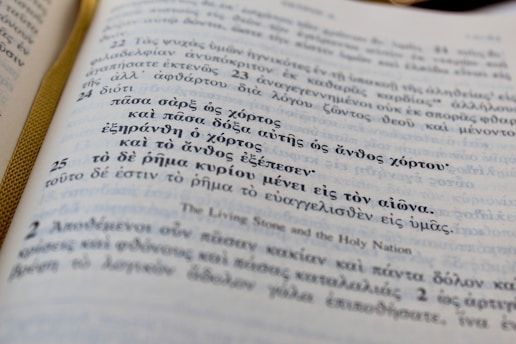 22 Τὰς ψυχὰς ὑμῶν ἡγνικότες ἐν τῇ ὑπακοῇ τῆς ἀληθείας εἰς
φιλαδελφίαν ἀνυπόκριτον ἐκ καθαρᾶς καρδίας ἀλλήλους
ἀγαπήσατε ἐκτενῶς 23 ἀναγεγεννημένοι οὐκ ἐκ σπορᾶς
τῆς ἀλλ᾽ ἀφθάρτου διὰ λόγου ζῶντος θεοῦ καὶ μένοντο
24 διότι
πᾶσα σὰρξ ὡς χόρτος
καὶ πᾶσα δόξα αὐτῆς ὡς ἄνθος χόρτου·
ἐξηράνθη ὁ χόρτος
καὶ τὸ ἄνθος ἐξέπεσεν·
25 τὸ δὲ ῥῆμα κυρίου μένει εἰς τὸν αἰῶνα.
τοῦτο δέ ἐστιν τὸ ῥῆμα τὸ εὐαγγελισθὲν εἰς ὑμᾶς.
The Living Stone and the Holy Nation
2 Ἀποθέμενοι οὖν πᾶσαν κακίαν καὶ πάντα δόλον καὶ
κρίσεις καὶ φθόνους καὶ πάσας καταλαλιάς 2 ὡς ἀρτιγ
βρέφη τὸ λογικὸν ἄδολον γάλα ἐπιποθήσατε, ἵνα ἐν